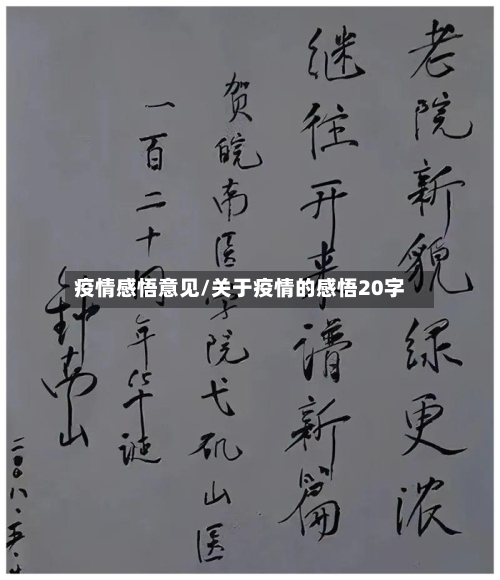 老院新貌绿更浓
继往开来谱新篇
贺皖南医学院弋矶山医
一百二十周年华诞
钟南山
二〇〇八.五.
疫情感悟意见/关于疫情的感悟20字